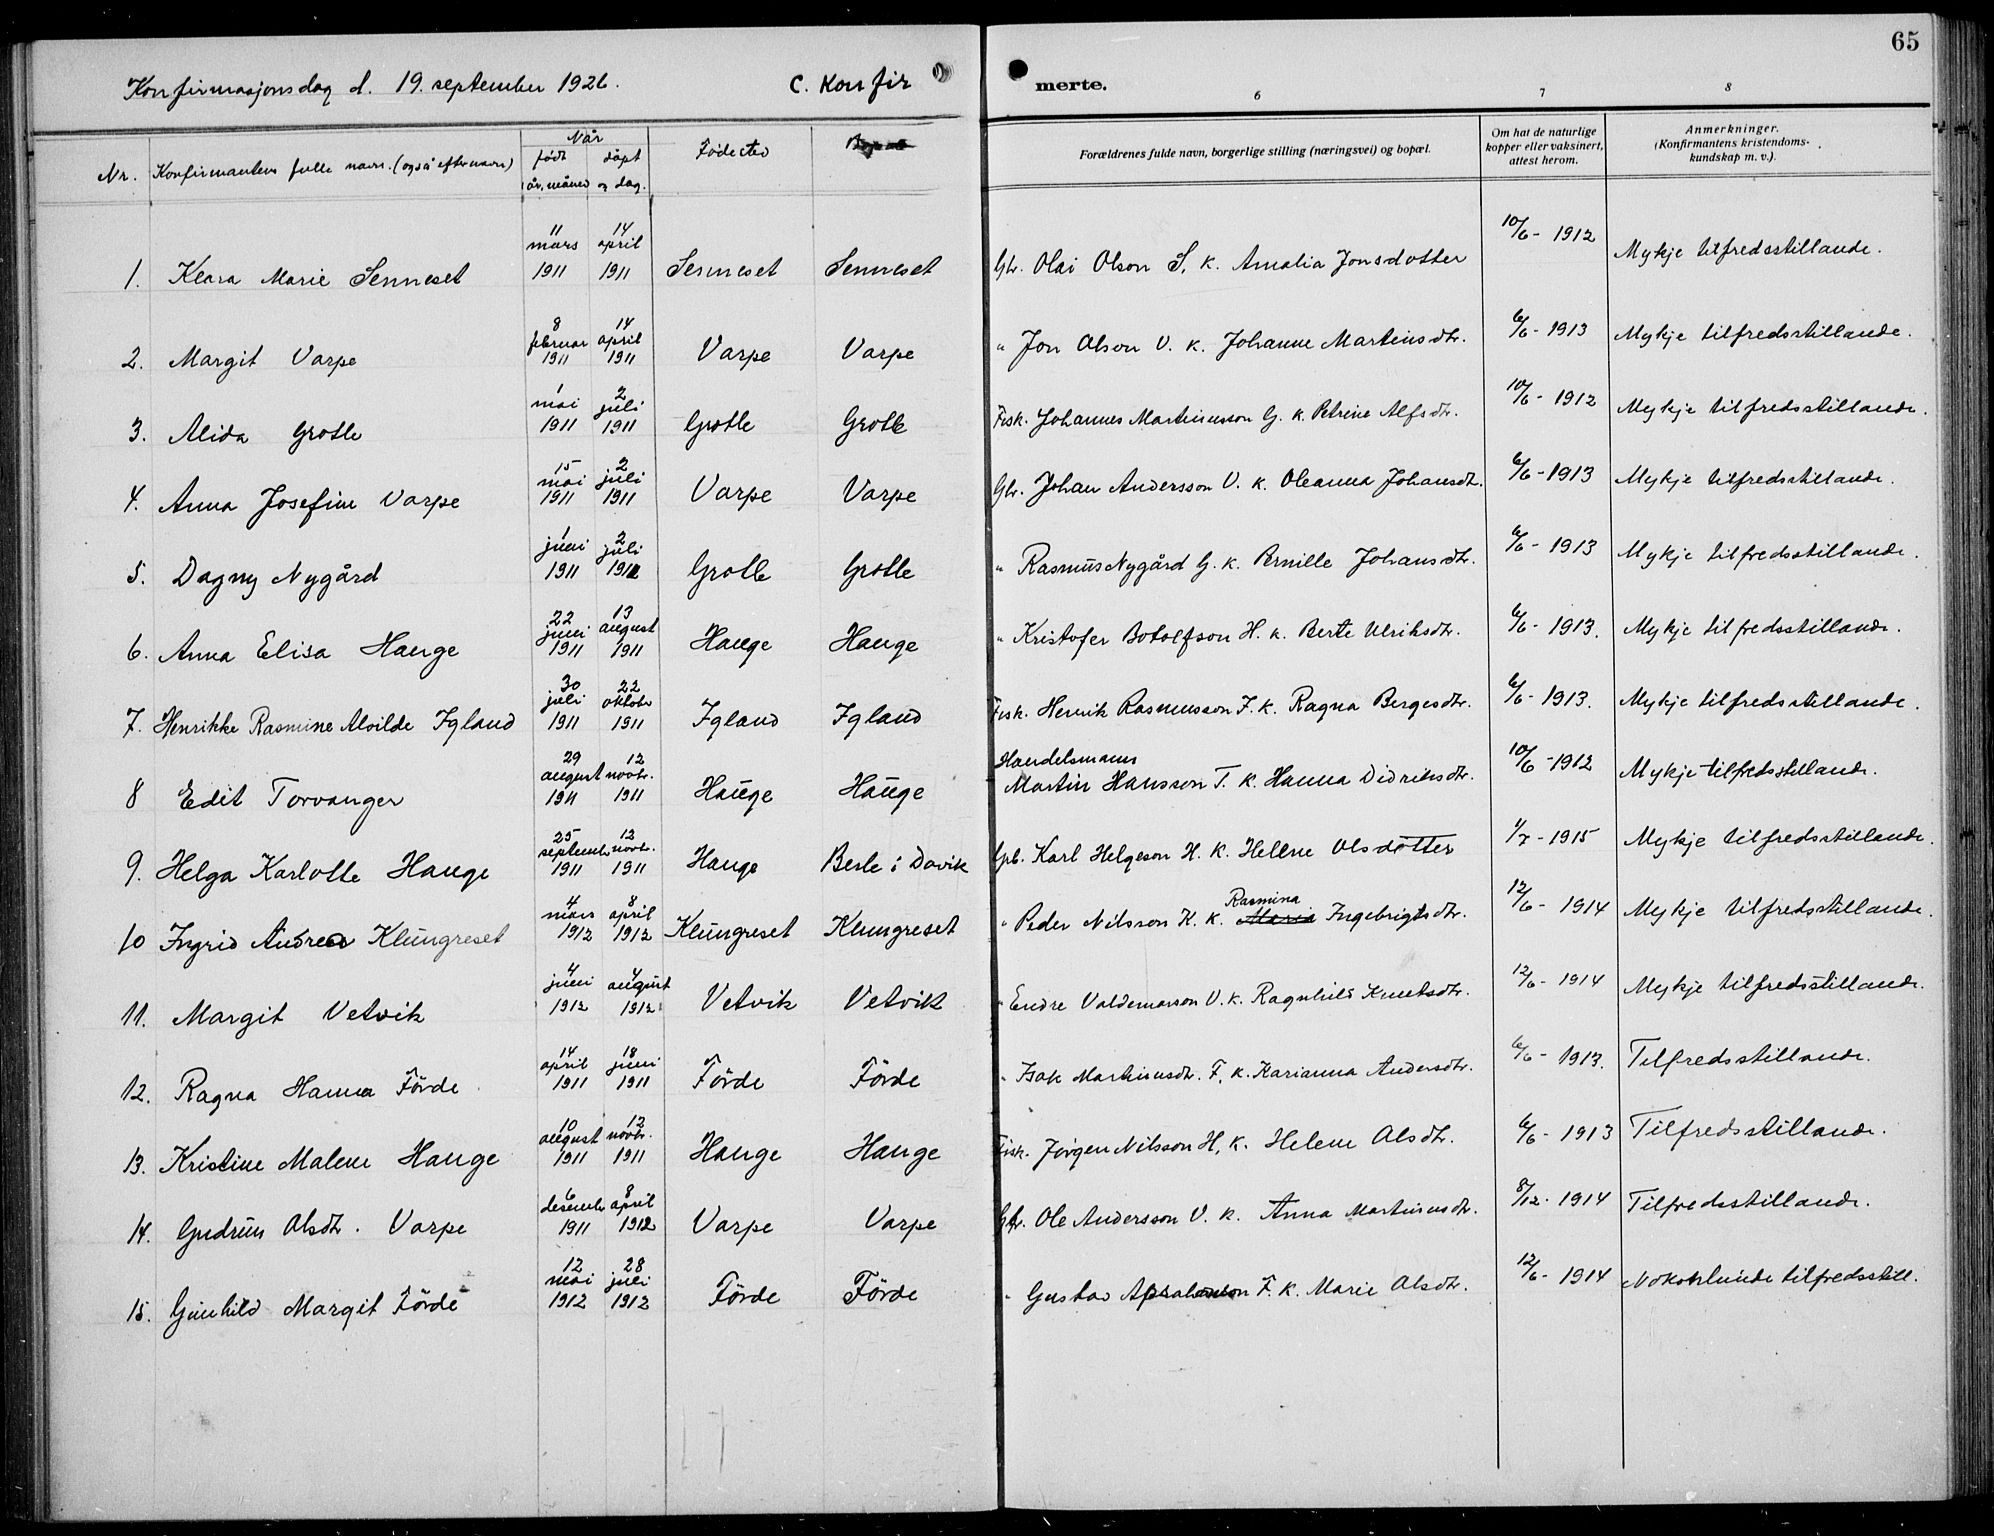 65
Konfirmasjonsdag d. 19. september 1926. C. Konfir merte.
6 7 8
Nr. Konfirmantens fulle navn. (også efternavn) Når født døpt år, måned og dag. Fødested
Forældrenes fulde navn, borgerlige stilling (næringsvei) og bopæl. Om hat de naturlige kopper eller vaksinert, attest herom. Anmerkninger. (Konfirmantens kristendoms-kundskap m. v.).
1. Klara Marie Senneset 11 mars 1911 14 april 1911 Senneset Senneset Gbr. Olai Olson S. k. Amalia Jonsdotter 10/6 - 1912 Mykje tilfredsstillande.
2. Margit Varpe 8 februar 1911 14 april 1911 Varpe Varpe " Jon Olson V. k. Johanne Martinsdtr. 6/6 - 1913 Mykje tilfredsstillande.
3. Alida Grotle 1 mai 1911 2 juli 1911 Grotle Grotle Fisk. Johannes Martinusson G. k. Petrine Alfsdtr. 10/6 - 1912 Mykje tilfredsstillande.
4. Anna Josefine Varpe 15 mai 1911 2 juli 1911 Varpe Varpe Gbr. Johan Andersson V. k. Oleanna Johansdtr. 6/6 - 1913 Mykje tilfredsstillande.
5. Dagny Nygård 1 juni 1911 2 juli 1911 Grotle Grotle " Rasmus Nygård G. k. Pernille Johansdtr. 6/6 - 1913 Mykje tilfredsstillande.
6. Anna Elisa Hauge 22 juni 1911 13 august 1911 Hauge Hauge " Kristofer Botolfson H. k. Berte Ulriksdtr. 6/6 - 1913. Mykje tilfredsstillande.
7. Henrikke Rasmine Alvilde Igland 30 juli 1911 22 oktobr 1911 Igland Igland Fisk. Henrik Rasmusson I. k. Ragna Bergesdtr. 6/6 - 1913. Mykje tilfredsstillande.
8 Edit Torvanger 29 august 1911 12 novbr. 1911 Hauge Hauge Handelsmann Martin Hansson T. k. Hanna Didriksdtr. 10/6 - 1912 Mykje tilfredsstillande.
9. Helga Karlotte Hauge 25 septembr 1911 12 novbr. 1911 Hauge Berle i Davik Karl Helgeson H. k. Helene Olsdotter 1/7 - 1915 Mykje tilfredsstillande.
10 Ingrid Andrea Klungreset 4 mars 1912 8 april 1912 Klungreset Klungreset " Peder Nilsson K. k. Maria Rasmina Ingebrigtsdtr. 12/6 - 1914 Mykje tilfredsstillande.
11. Margit Vetvik 4 juni 1912 4 august 1912 Vetvik Vetvik " Endre Valdemarson V. k. Ragnhild Knutsdtr. 12/6 - 1914 Mykje tilfredsstillande.
12. Ragna Hanna Förde 14 april 1911 18 juni 1911 Förde Förde " Isak Martinusdtr. F. k. Karianna Andersdtr. 6/6 - 1913. Tilfredsstillande.
13. Kristine Malene Hauge 10 august 1911 12 novbr. 1911 Hauge Hauge Fisk. Jørgen Nilsson H. k. Helene Olsdtr. 6/6 - 1913 Tilfredsstillande.
14. Gudrun Olsdtr. Varpe 6 desembr 1911 8 april 1912 Varpe Varpe Gbr. Ole Andersson V. k. Anna Martinusdtr. 8/12 - 1914 Tilfredsstillande.
15. Gunhild Margit Förde 12 mai 1912 28 juli 1912 Förde Förde " Gustav F. k. Marie Olsdtr. 12/6 - 1914 Nokolunde tilfredsstill.